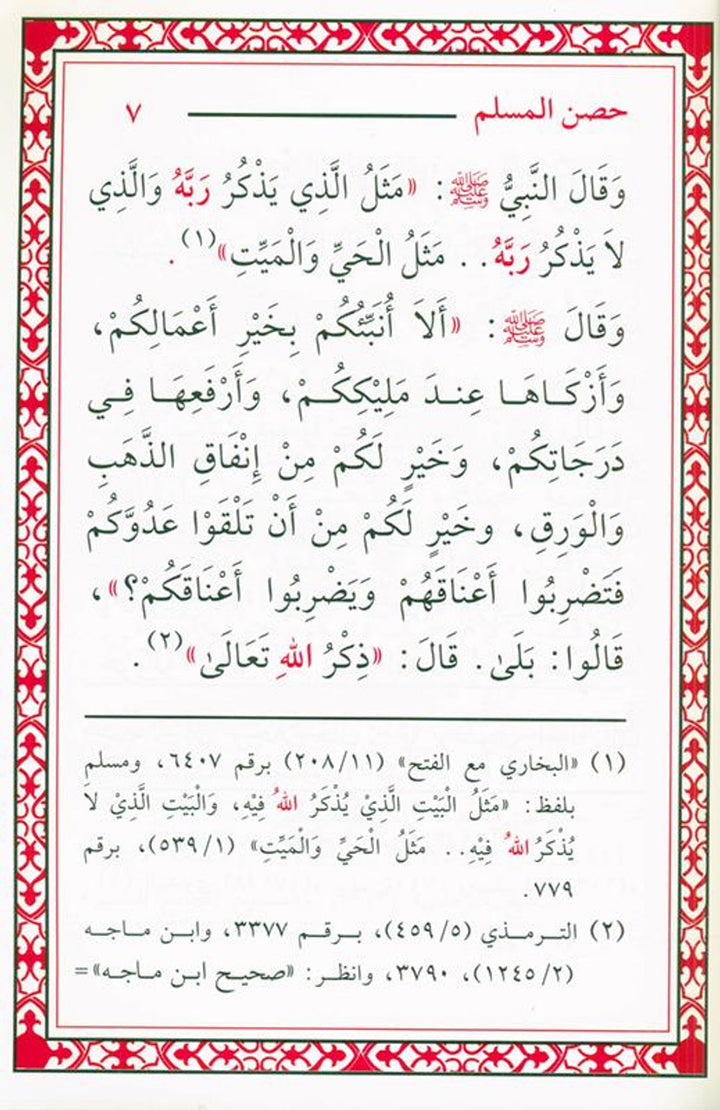 حصن المسلم ٧
وَقَالَ النَّبِيُّ ﷺ: «مَثَلُ الَّذِي يَذْكُرُ رَبَّهُ وَالَّذِي
لاَ يَذْكُرُ رَبَّهُ.. مَثَلُ الْحَيِّ وَالْمَيِّتِ»(١).
وَقَالَ ﷺ: «أَلاَ أُنَبِّئُكُمْ بِخَيْرِ أَعْمَالِكُمْ،
وَأَزْكَاهَا عِندَ مَلِيْكِكُمْ، وَأَرْفَعِهَا فِي
دَرَجَاتِكُمْ، وَخَيْرٍ لَكُمْ مِنْ إِنْفَاقِ الذَّهَبِ
وَالْوَرِقِ، وخَيْرٍ لَكُمْ مِنْ أَنْ تَلْقَوْا عَدُوَّكُمْ
فَتَضْرِبُوا أَعْنَاقَهُمْ وَيَضْرِبُوا أَعْنَاقَكُمْ؟»،
قَالُوا: بَلَىٰ. قَالَ: «ذِكْرُ اللهِ تَعَالَىٰ»(٢).
(١) «البخاري مع الفتح» (٢٠٨/١١) برقم ٦٤٠٧، ومسلم
بلفظ: «مَثَلُ الْبَيْتِ الَّذِيْ يُذْكَرُ اللهُ فِيْهِ، وَالْبَيْتِ الَّذِيْ لاَ
يُذْكَرُ اللهُ فِيْهِ.. مَثَلُ الْحَيِّ وَالْمَيِّتِ» (٥٣٩/١)، برقم
٧٧٩.
(٢) الترمذي (٤٥٩/٥)، برقم ٣٣٧٧، وابن ماجه
(١٢٤٥/٢)، ٣٧٩٠، وانظر: «صحيح ابن ماجه»=